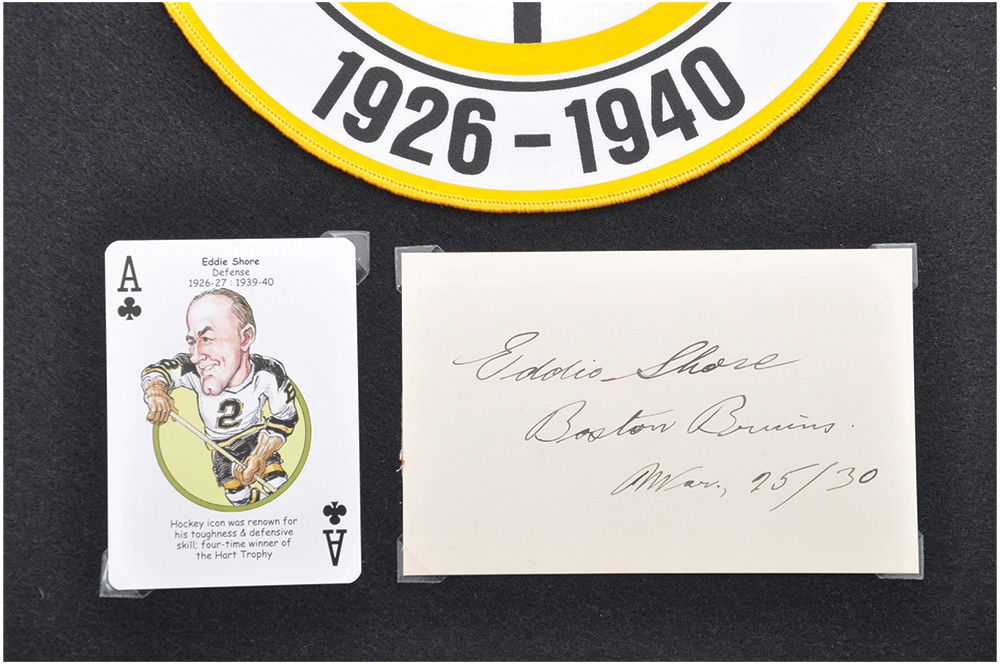 1926 – 1940
A
Eddie Shore
Defense
1926-27 : 1939-40
2
Hockey icon was renown for
his toughness & defensive
skill; four-time winner of
the Hart Trophy
A
Eddie Shore
Boston Bruins.
Mar., 25/30